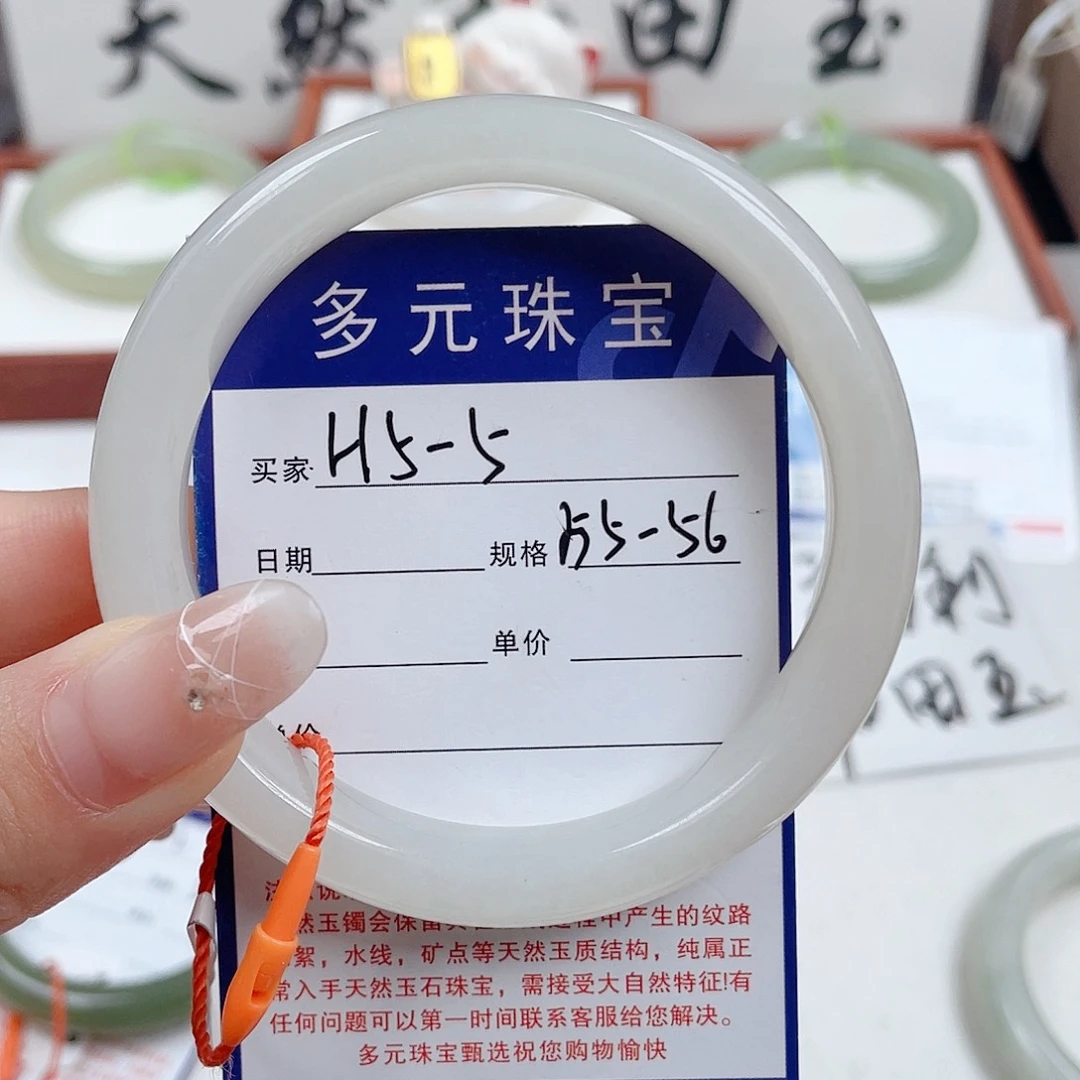 天然 田玉
多元珠宝
买家 H5-5
日期 规格 55-56
单价
价
田玉
然玉镯会保留 中产生的纹路
絮，水线，矿点等天然玉质结构，纯属正
常入手天然玉石珠宝，需接受大自然特征!有
任何问题可以第一时间联系客服给您解决。
多元珠宝甄选祝您购物愉快